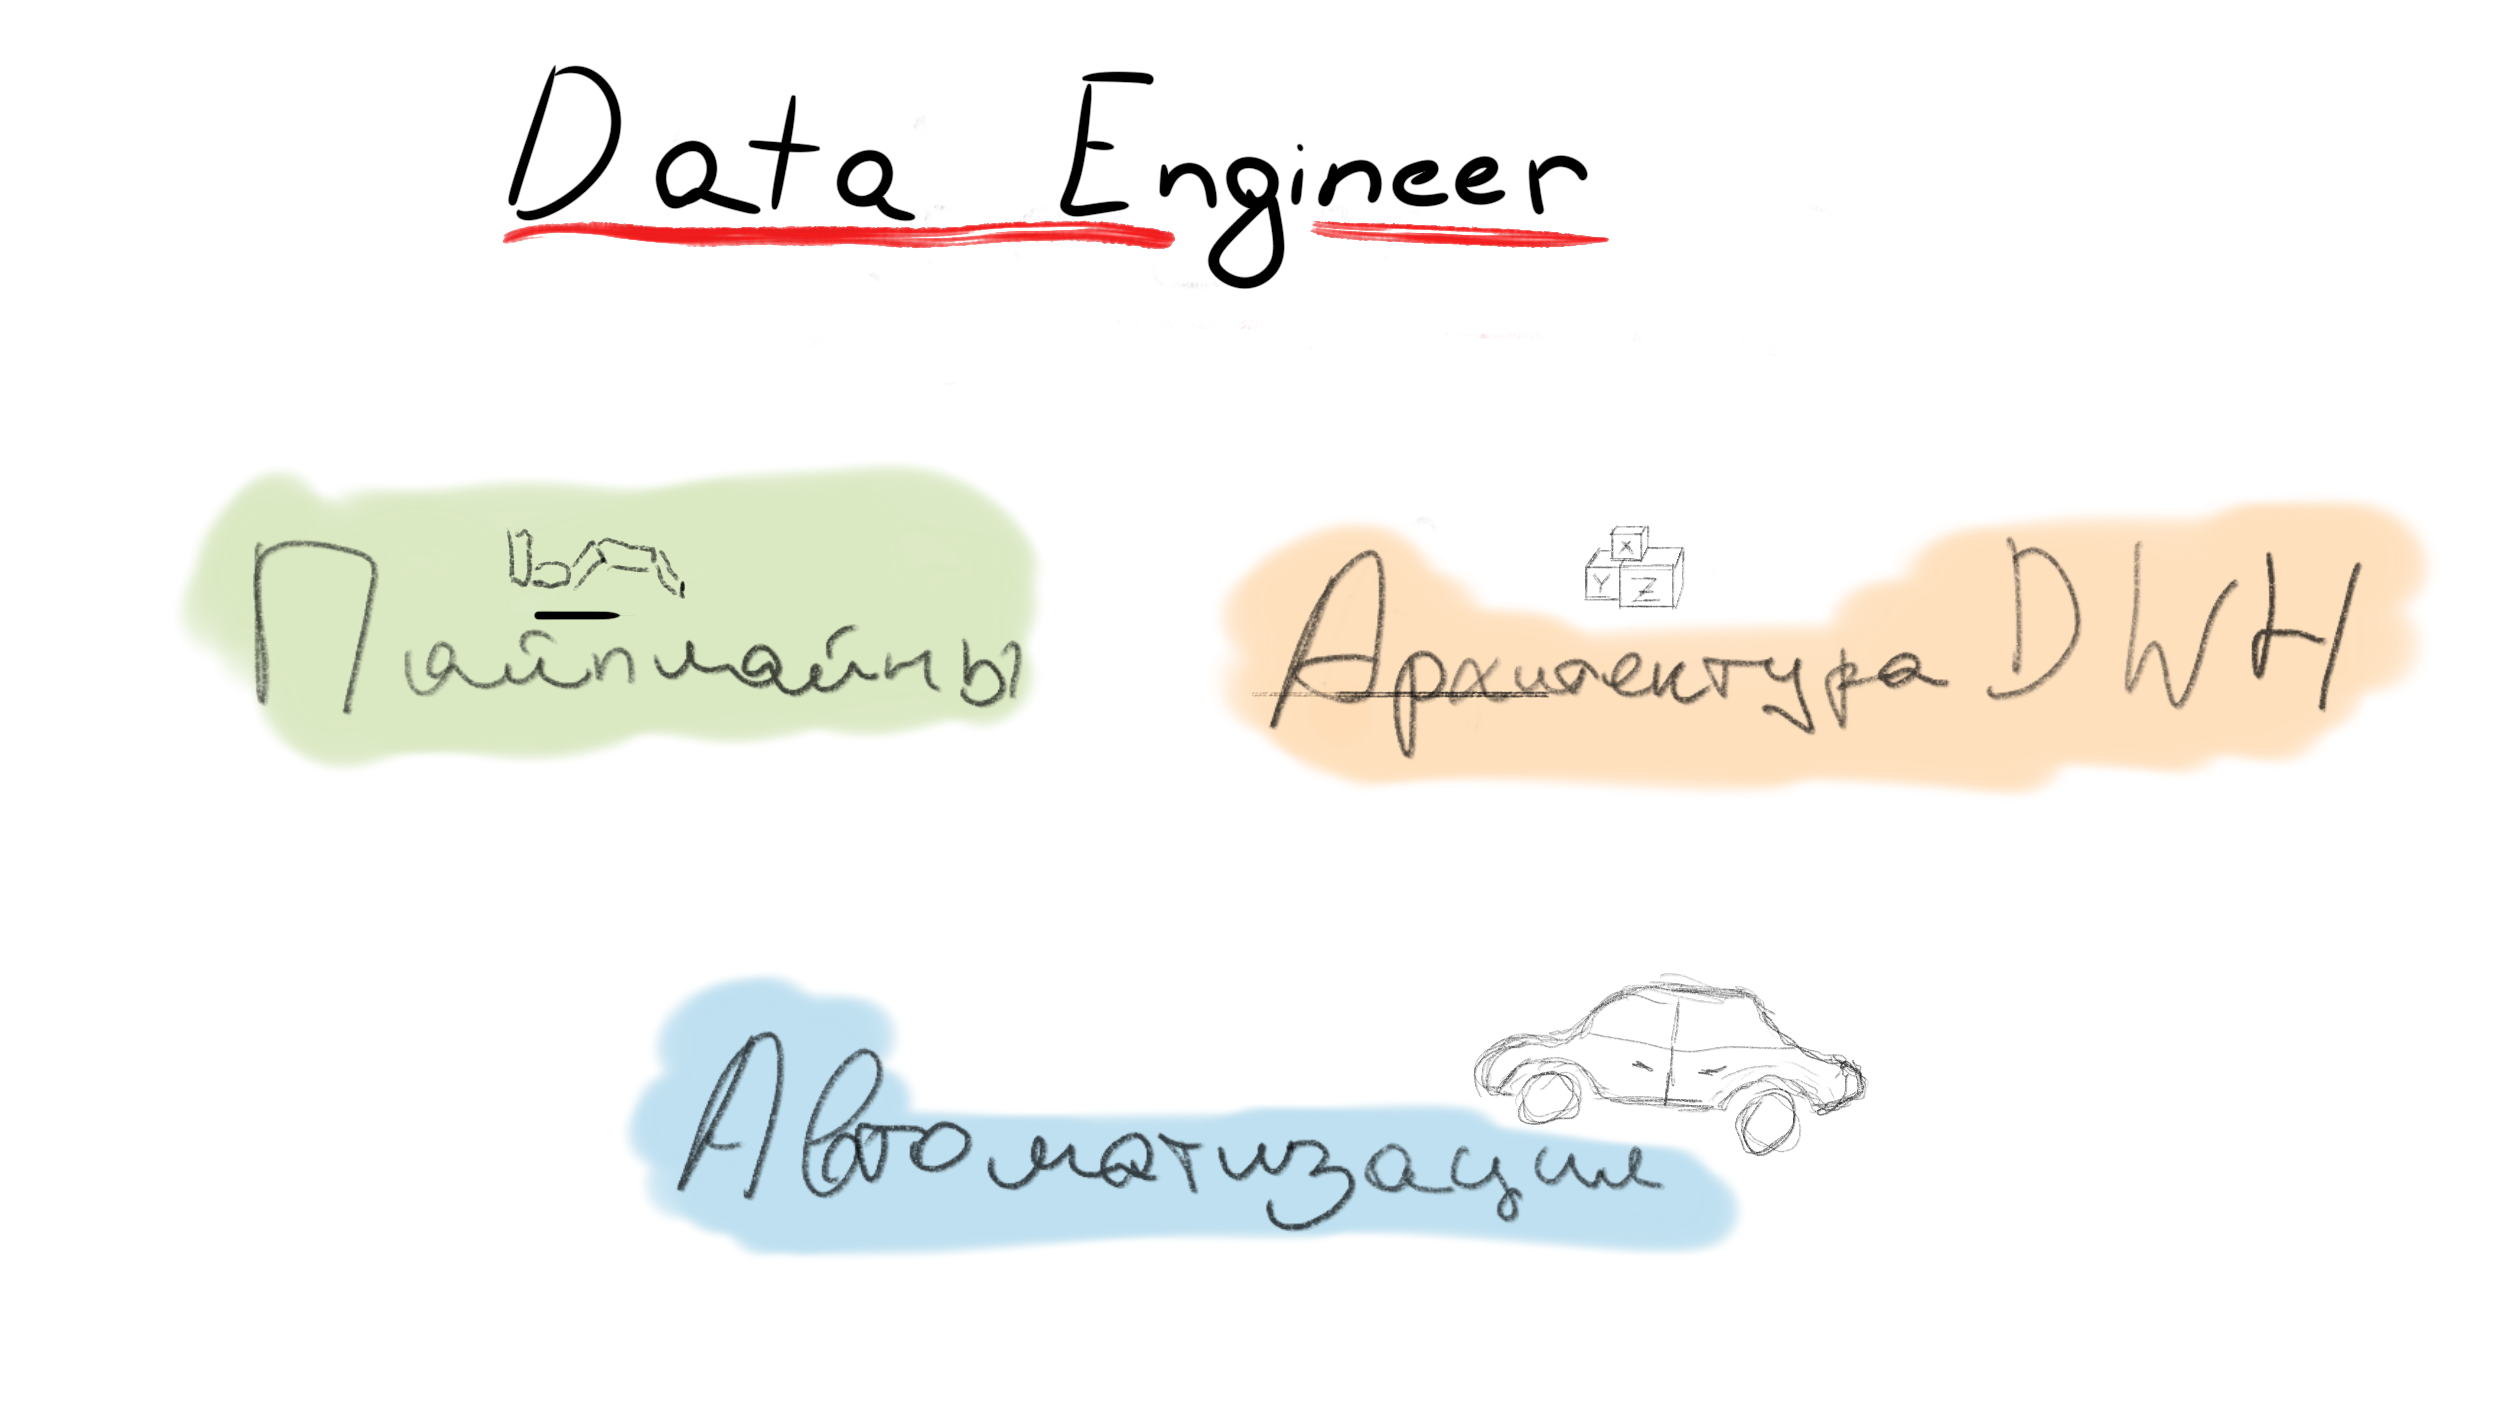 Data Engineer
Пайплайны
X
Y Z
Архитектура DWH
Автоматизация